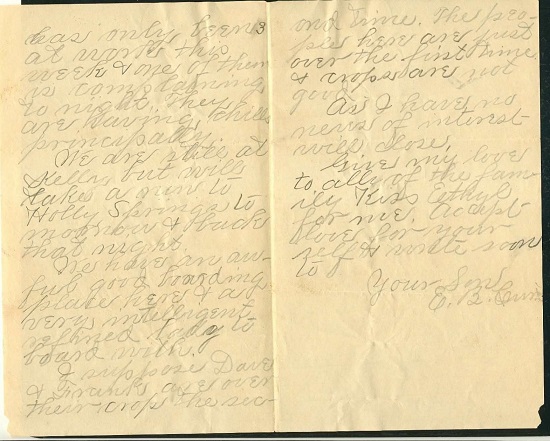 has only been 3
at work this
week & one of them
is complaining
to night. They
are having chills
principally.
We are still at
Kelly but will
take a run to
Holly Springs to
morrow & back
that night.
We have an aw-
ful good boarding
place here & a
very intelligent
refined lady to
board with.
I suppose Dave
& Frank are over
their crop the sec-
ond time. The peo-
ple here are just
over the first time
& crops are not
good.
As I have no
news of interest
will close.
Give my love
to all of the fam-
ily Kiss Ethyl
for me. Accept
love for your
self & write soon
to
Your Son
E. L.